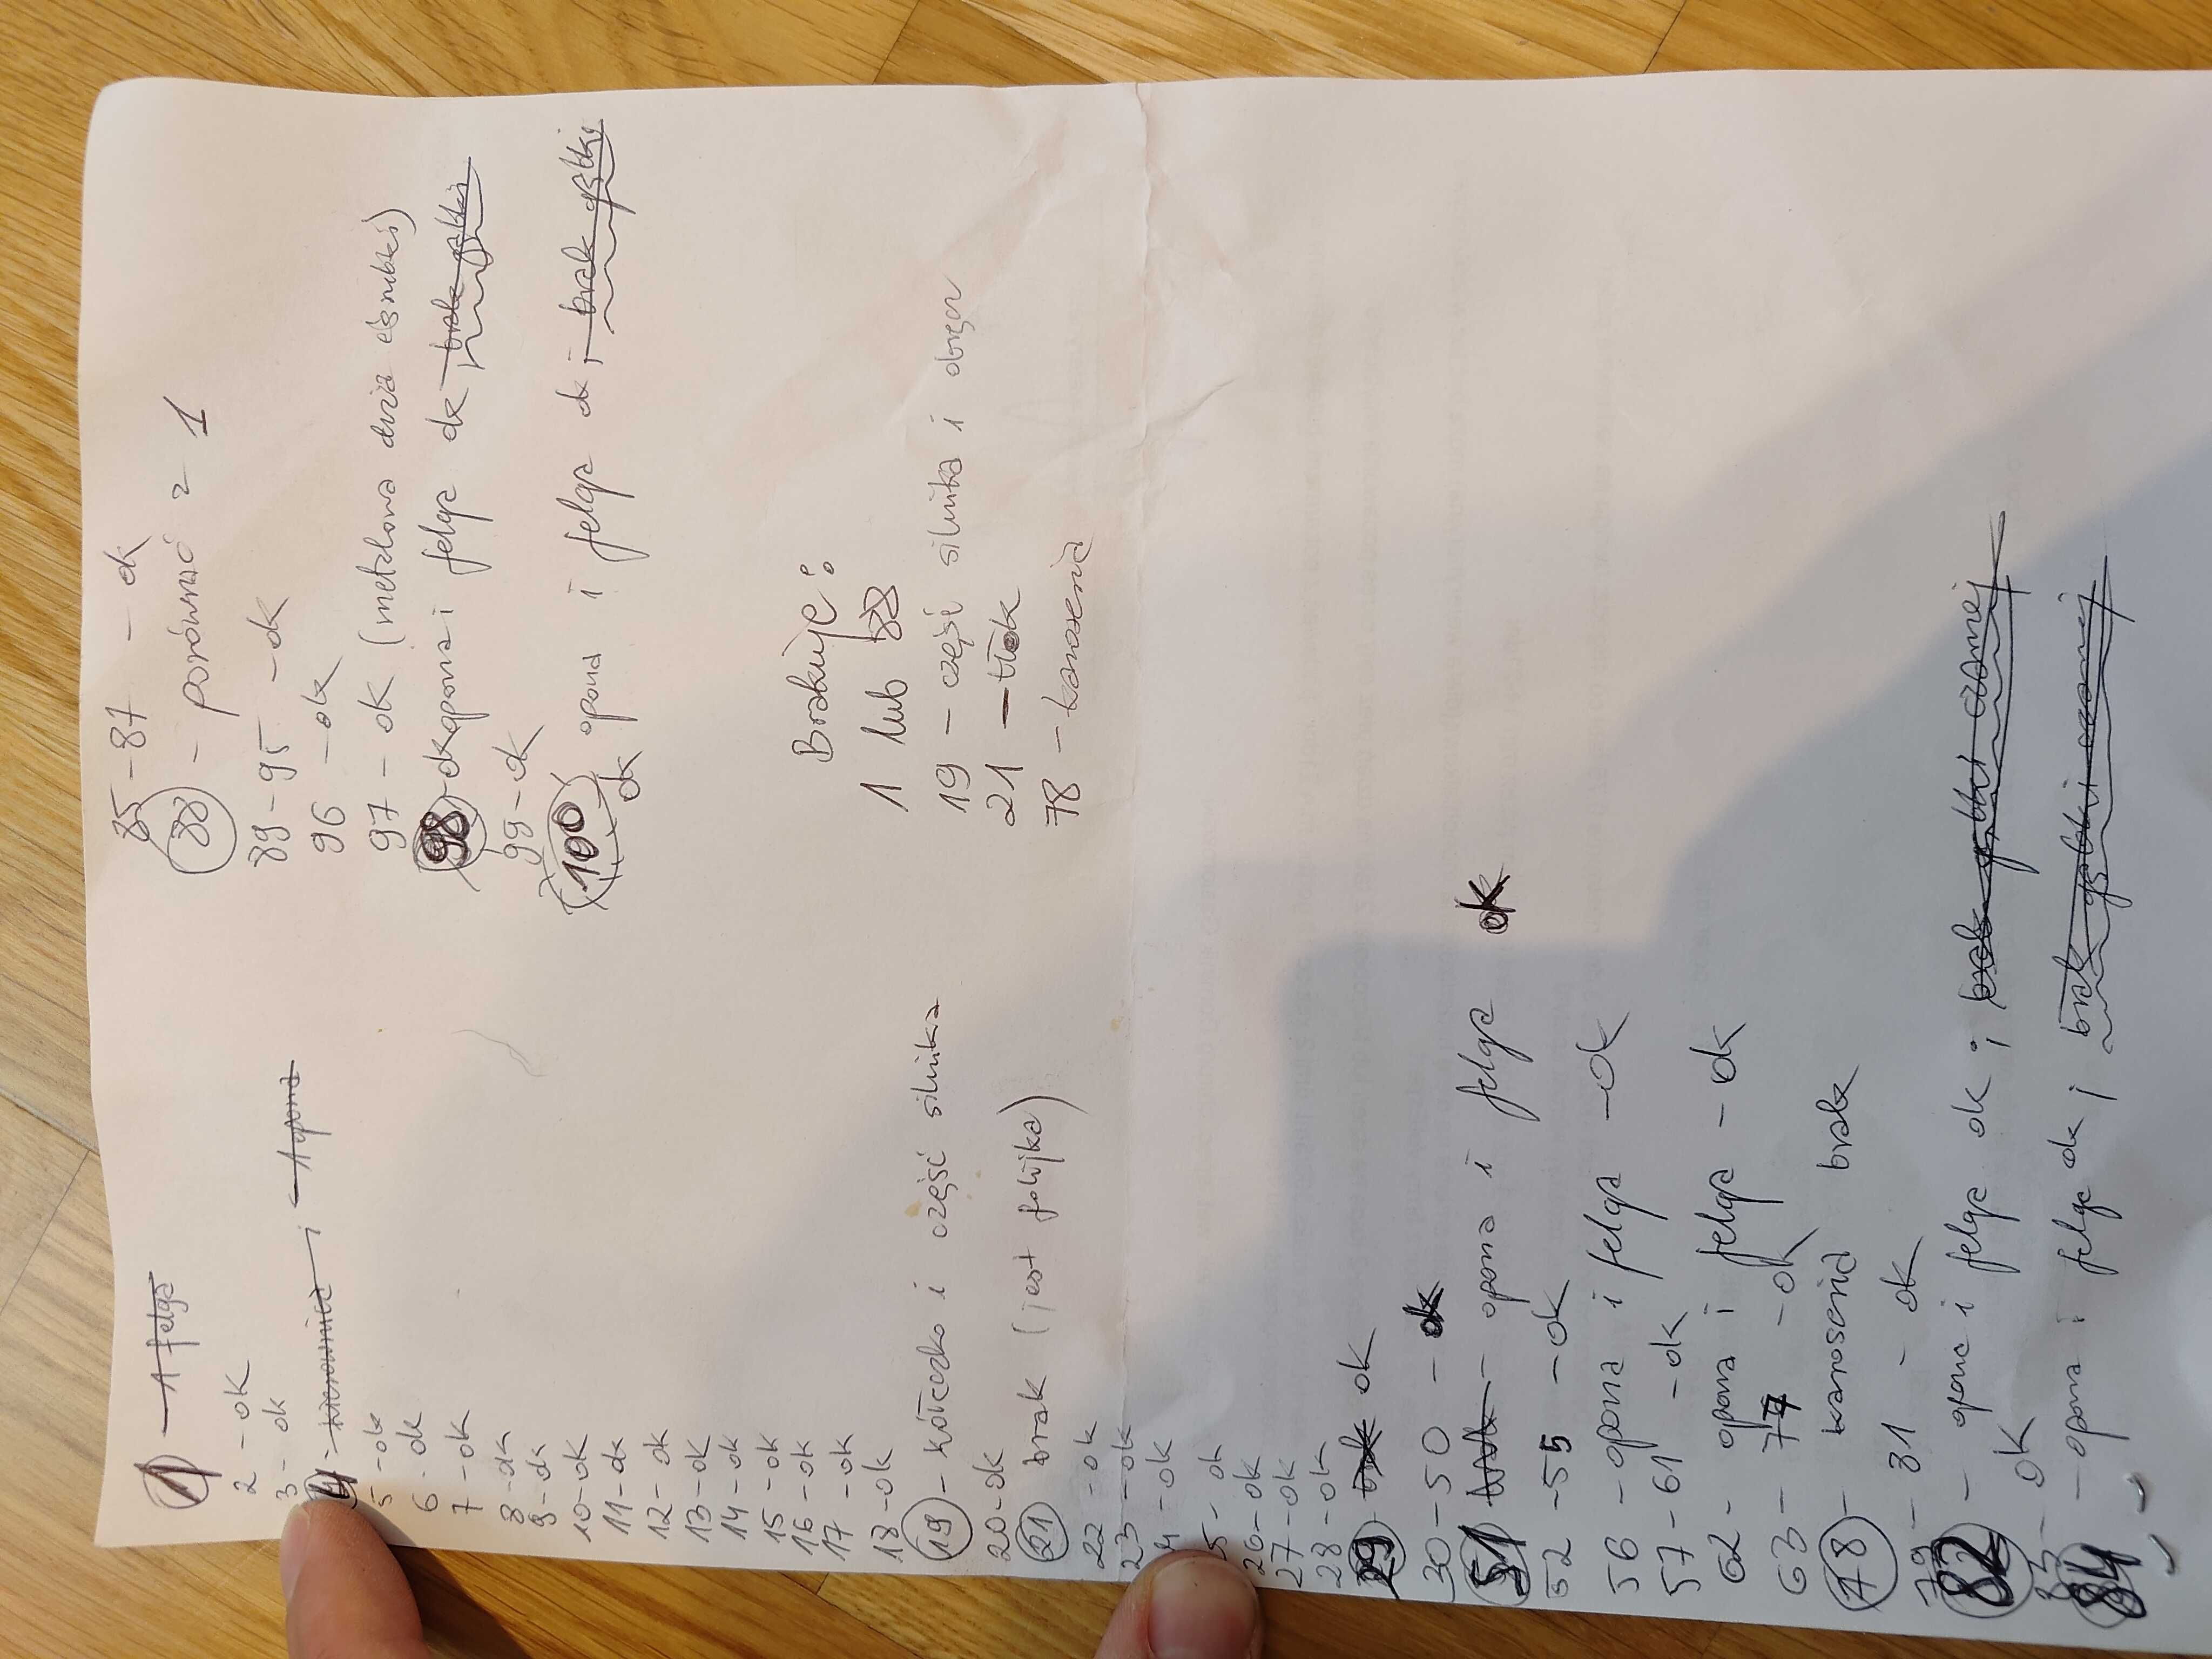 1 - 1 felga
2 - ok
3 - ok
4 - kierownica i 1 opona
5 - ok
6 - ok
7 - ok
8 - ok
9 - ok
10 - ok
11 - ok
12 - ok
13 - ok
14 - ok
15 - ok
16 - ok
17 - ok
18 - ok
19 - kółeczko i część silnika
20 - ok
21 brak (jest folijka)
22 - ok
23 - ok
4 - ok
5 - ok
26 - ok
27 - ok
28 - ok
29 - brak ok
30 - 50 - ok
51 brak - opona i felga ok
52 - 55 - ok
56 - opona i felga - ok
57 - 61 - ok
62 - opona i felga - ok
63 - 77 - ok
78 - karoseria brak
79 - 81 - ok
82 - opona i felga ok; brak gąbki czarnej
83 - ok
84 - opona i felga ok; brak gąbki czarnej
85 - 87 - ok
88 - porównać z 1
89 - 95 - ok
96 - ok
97 - ok (metalowa duża)
98 - ok opona i felga ok; brak gąbki
99 - ok
100 opona i felga ok; brak gąbki
ok
Brakuje:
1 lub 88
19 - część silnika i obręcz
21 - tłok
78 - karoseria